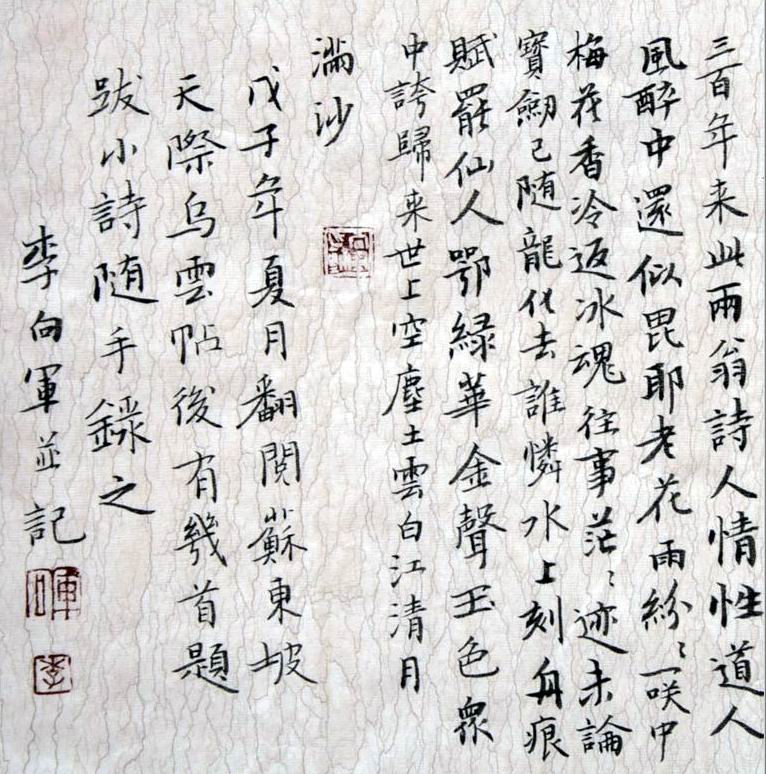 三百年来此兩翁詩人情性道人
風醉中還似毘耶老花雨紛〻一咲中
梅花香冷返冰魂往事茫〻迹未論
寶劒已随龍化去誰憐水上刻舟痕
賦罷仙人鄂緑華金聲玉色衆
中誇歸来世上空塵土雲白江清月
滿沙
戊子年夏月翻閲蘇東坡
天際烏雲帖後有幾首題
跋小詩随手録之
李向軍並記
李